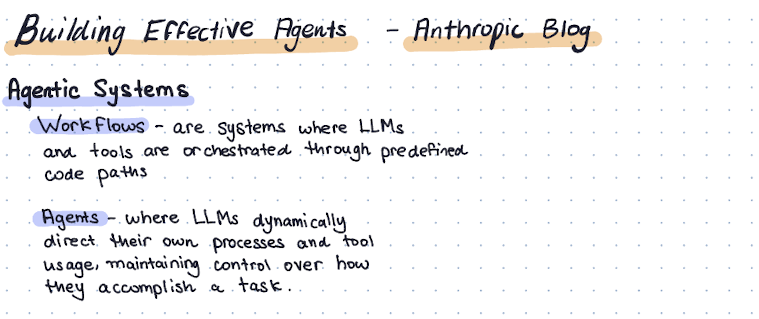 Building Effective Agents - Anthropic Blog
Agentic Systems
Workflows - are systems where LLMs
and tools are orchestrated through predefined
code paths
Agents - where LLMs dynamically
direct their own processes and tool
usage, maintaining control over how
they accomplish a task.